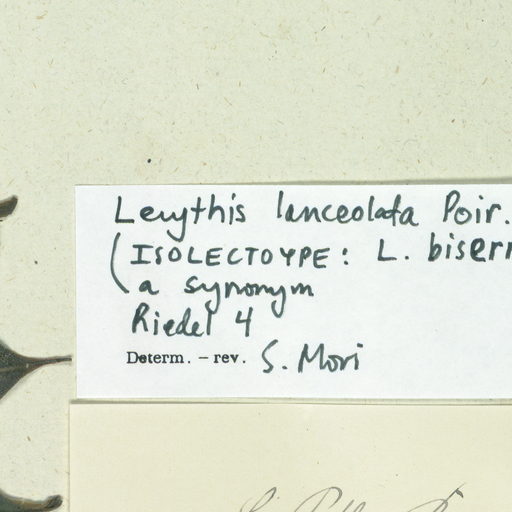 Lecythis lanceolata Poir.
(ISOLECTOYPE: L. biserr
a synonym
Riedel 4
Determ. – rev. S. Mori